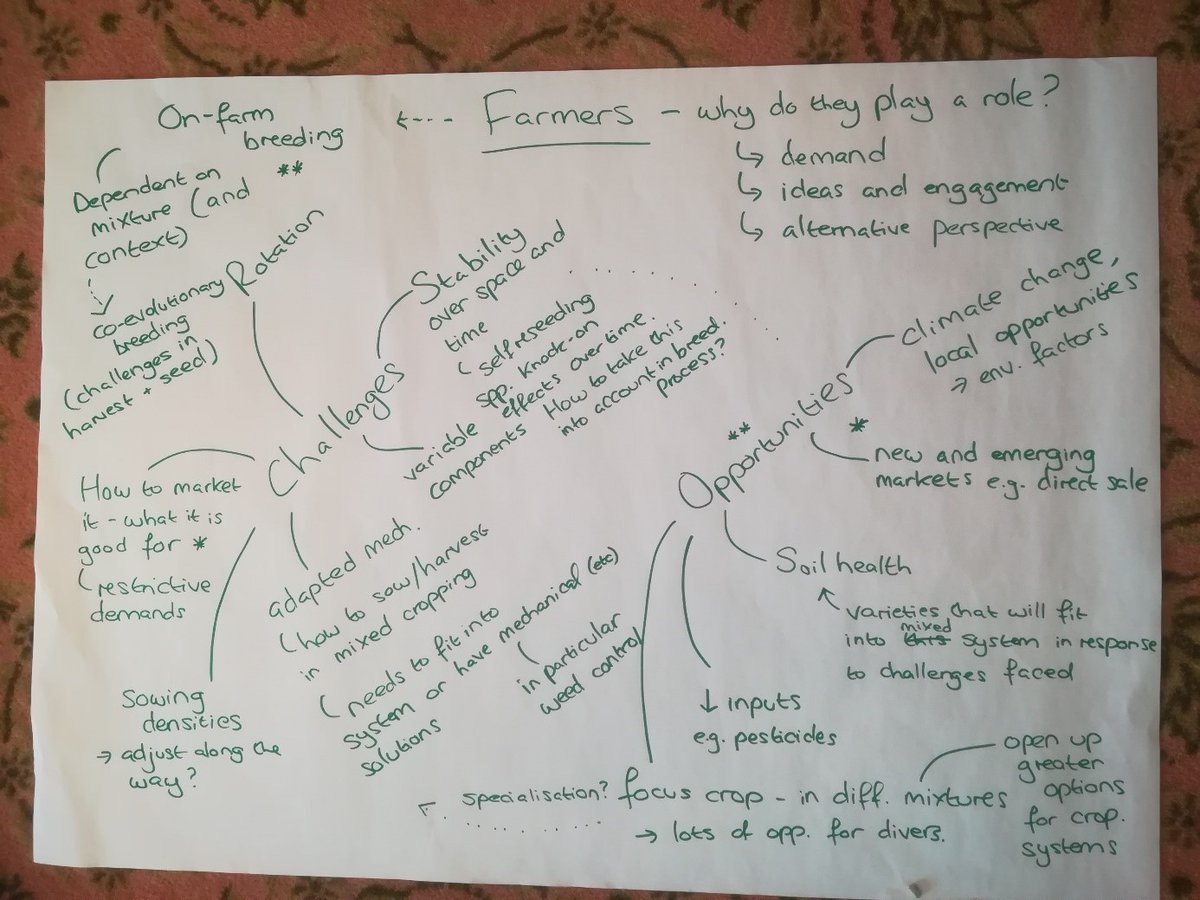 On-farm
breeding
**
←--- Farmers - why do they play a role?
↳ demand
↳ ideas and engagement
↳ alternative perspective
Dependent on
mixture (and
context)
co-evolutionary
breeding
(challenges in
harvest + seed)
Challenges
Rotation
Stability
over space and
time
self-reseeding
spp. knock-on
effects over time.
How to take this
into account in breed.
process?
variable
components
How to market
it - what it is
good for *
restrictive
demands
Sowing
densities
→ adjust along the
way?
adapted mech.
(how to sow/harvest
in mixed cropping
(needs to fit into
system or have mechanical (etc)
solutions
in particular
weed control
**
Opportunities
*
climate change,
local opportunities
→ env. factors
new and emerging
markets e.g. direct sale
Soil health
varieties that will fit
mixed
into this system in response
to challenges faced
↓ inputs
eg. pesticides
specialisation? focus crop - in diff. mixtures
→ lots of opp. for divers.
open up
greater
options
for crop.
systems